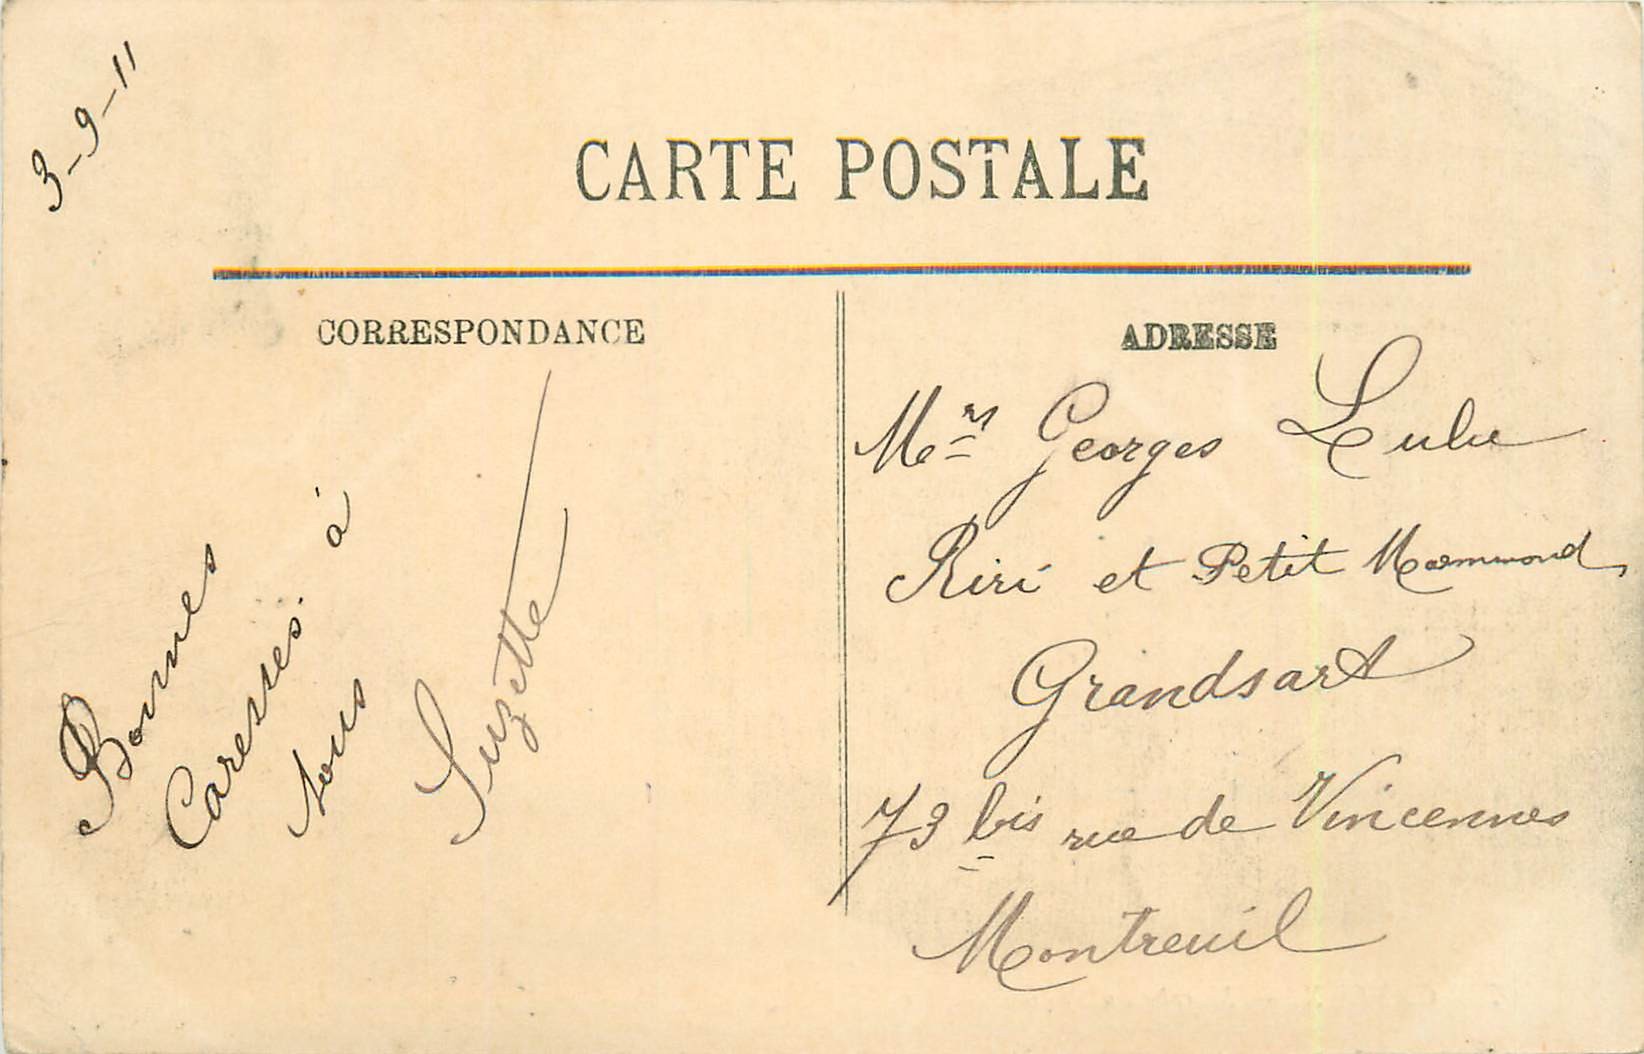 3-9-11
CARTE POSTALE
CORRESPONDANCE
Bonnes
Caresses à
tous
Suzette
ADRESSE
Mrs Georges Lulu
Riri et Petit
Grandsart
73 bis rue de Vincennes
Montreuil